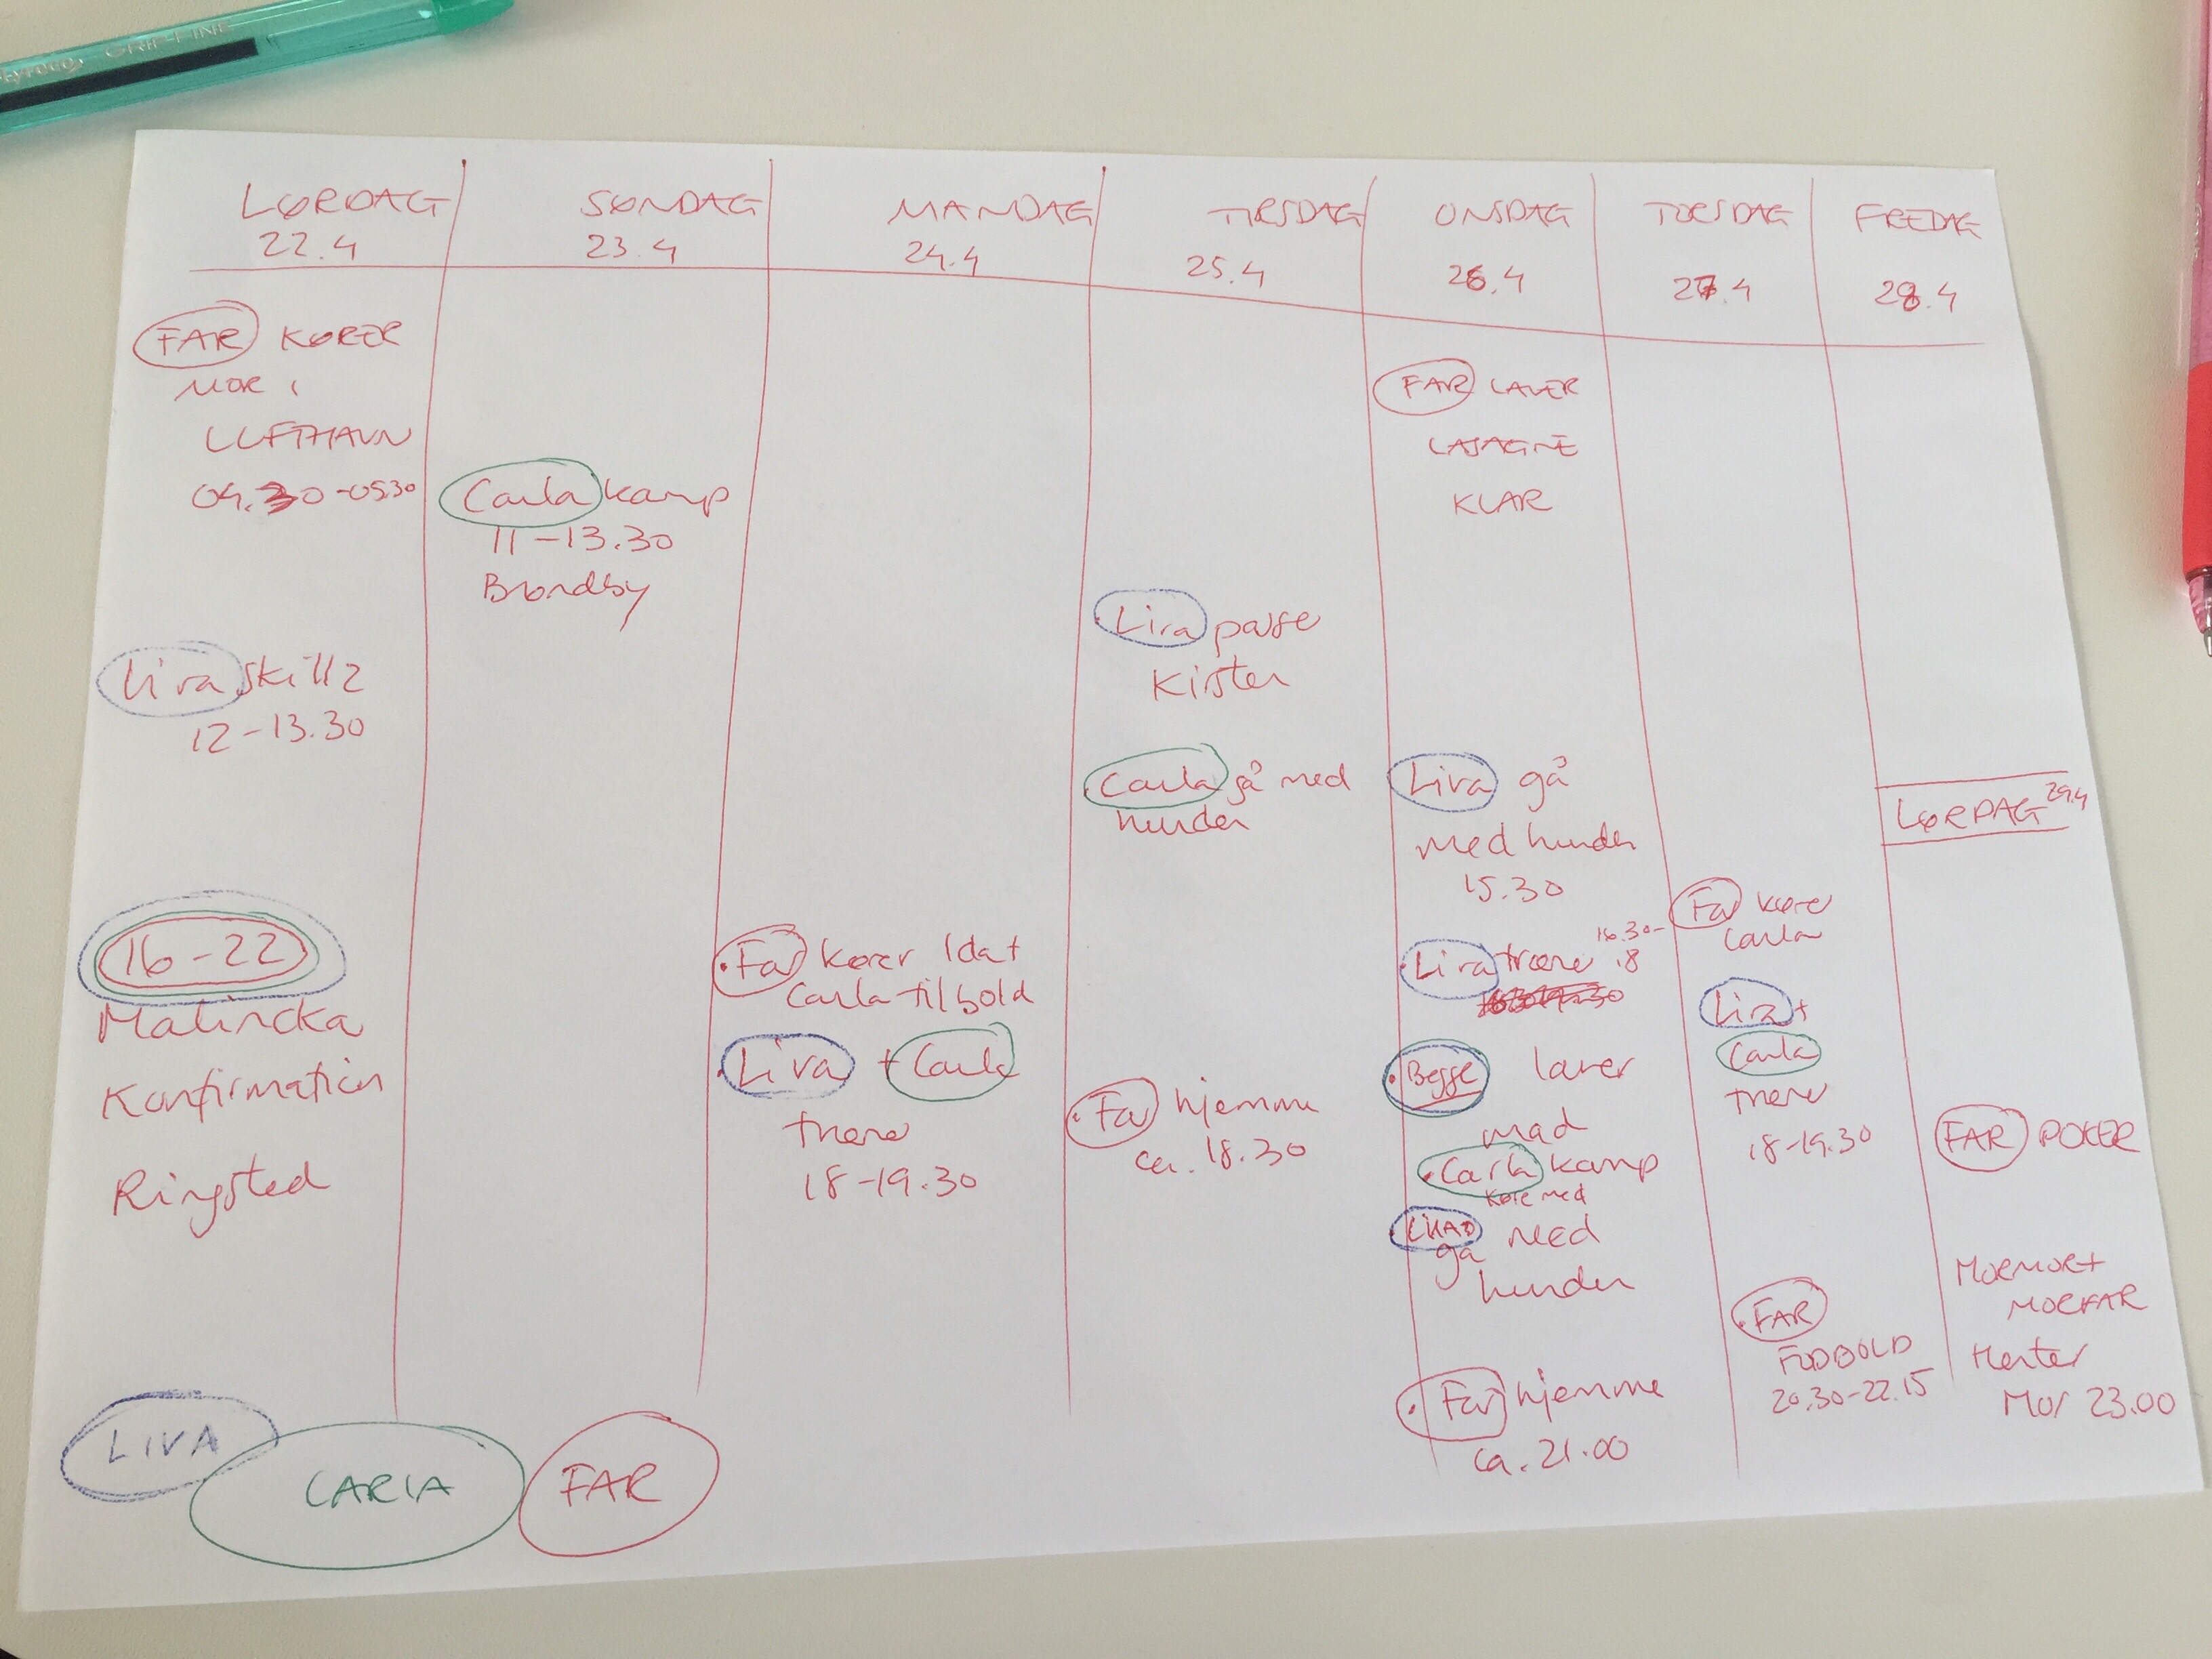 GRIP-FINE
LØRDAG
22.4
FAR KØRER
MOR I
LUFTHAVN
04.30-05.30
Liva skillz
12-13.30
16-22
Malincka
Konfirmation
Ringsted
SØNDAG
23.4
Carla kamp
11-13.30
Brøndby
MANDAG
24.4
• Far kører Ida +
Carla til bold
• Liva + Carla
træne
18-19.30
TIRSDAG
25.4
• Liva passe
Kirsten
• Carla gå med
hunden
• Far hjemme
ca. 18.30
ONSDAG
26.4
FAR LAVER
LASAGNE
KLAR
Liva gå
med hunden
15.30
• Liva træne 16.30-
18
• Begge laver
mad
• Carla kamp
Køre med
• LIVA
gå med
hunden
• Far hjemme
ca. 21.00
TORSDAG
27.4
Far køre
Carla
Liva +
Carla
træne
18-19.30
• FAR
FODBOLD
20.30-22.15
FREDAG
28.4
LØRDAG 29.4
FAR POKER
MORMOR +
MORFAR
Henter
Mor 23.00
LIVA
CARLA
FAR